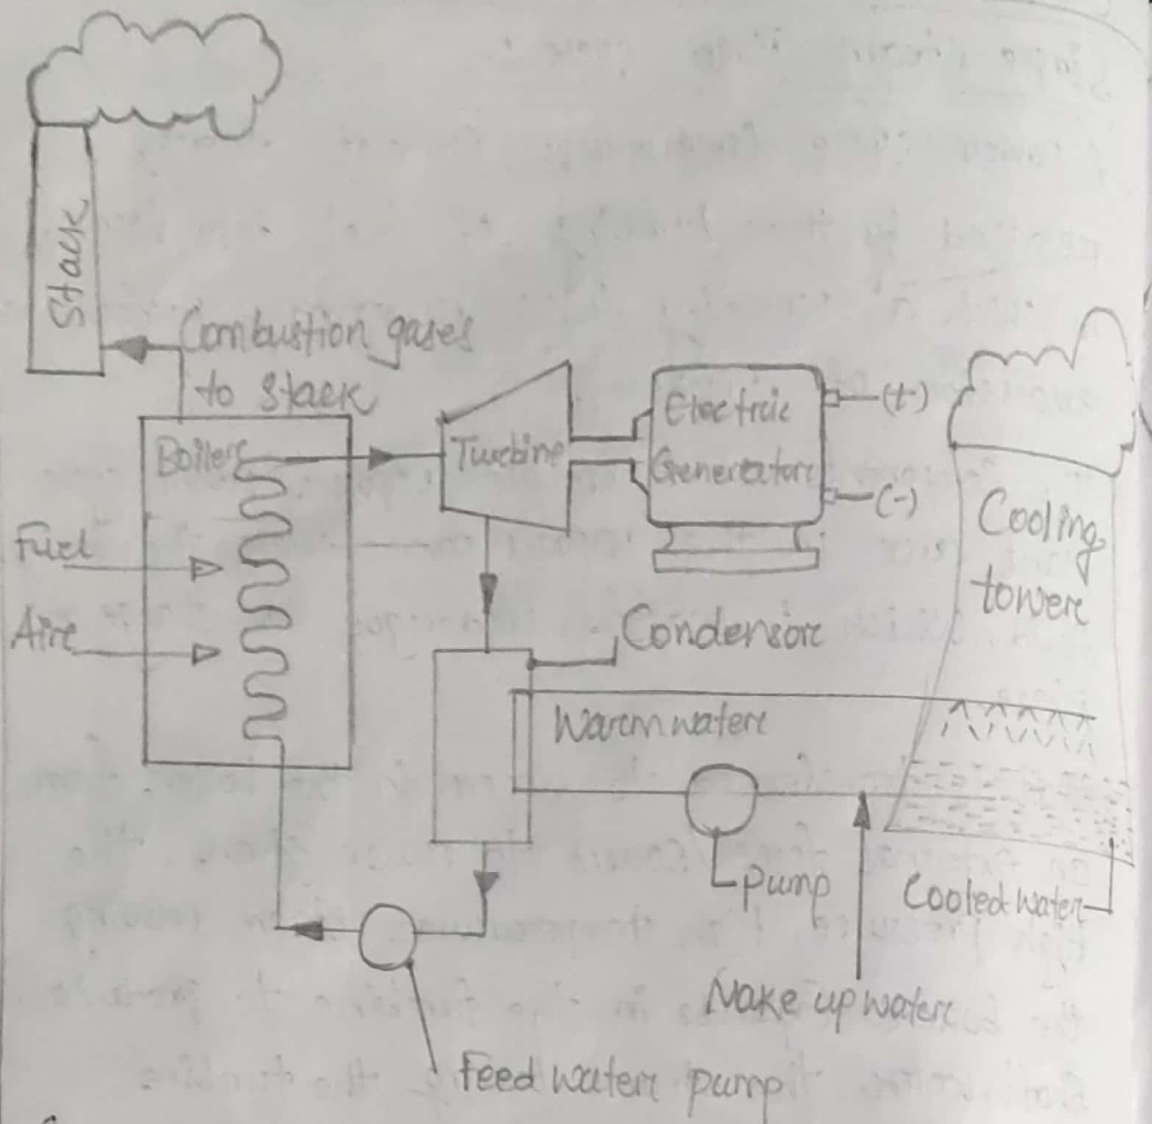 Stack
Combustion gases
to stack
Boiler
Turbine
Electric
Generator
(+)
(-)
Cooling
tower
Fuel
Air
Condensor
Warm water
Pump
Cooled water
Make up water
Feed water pump